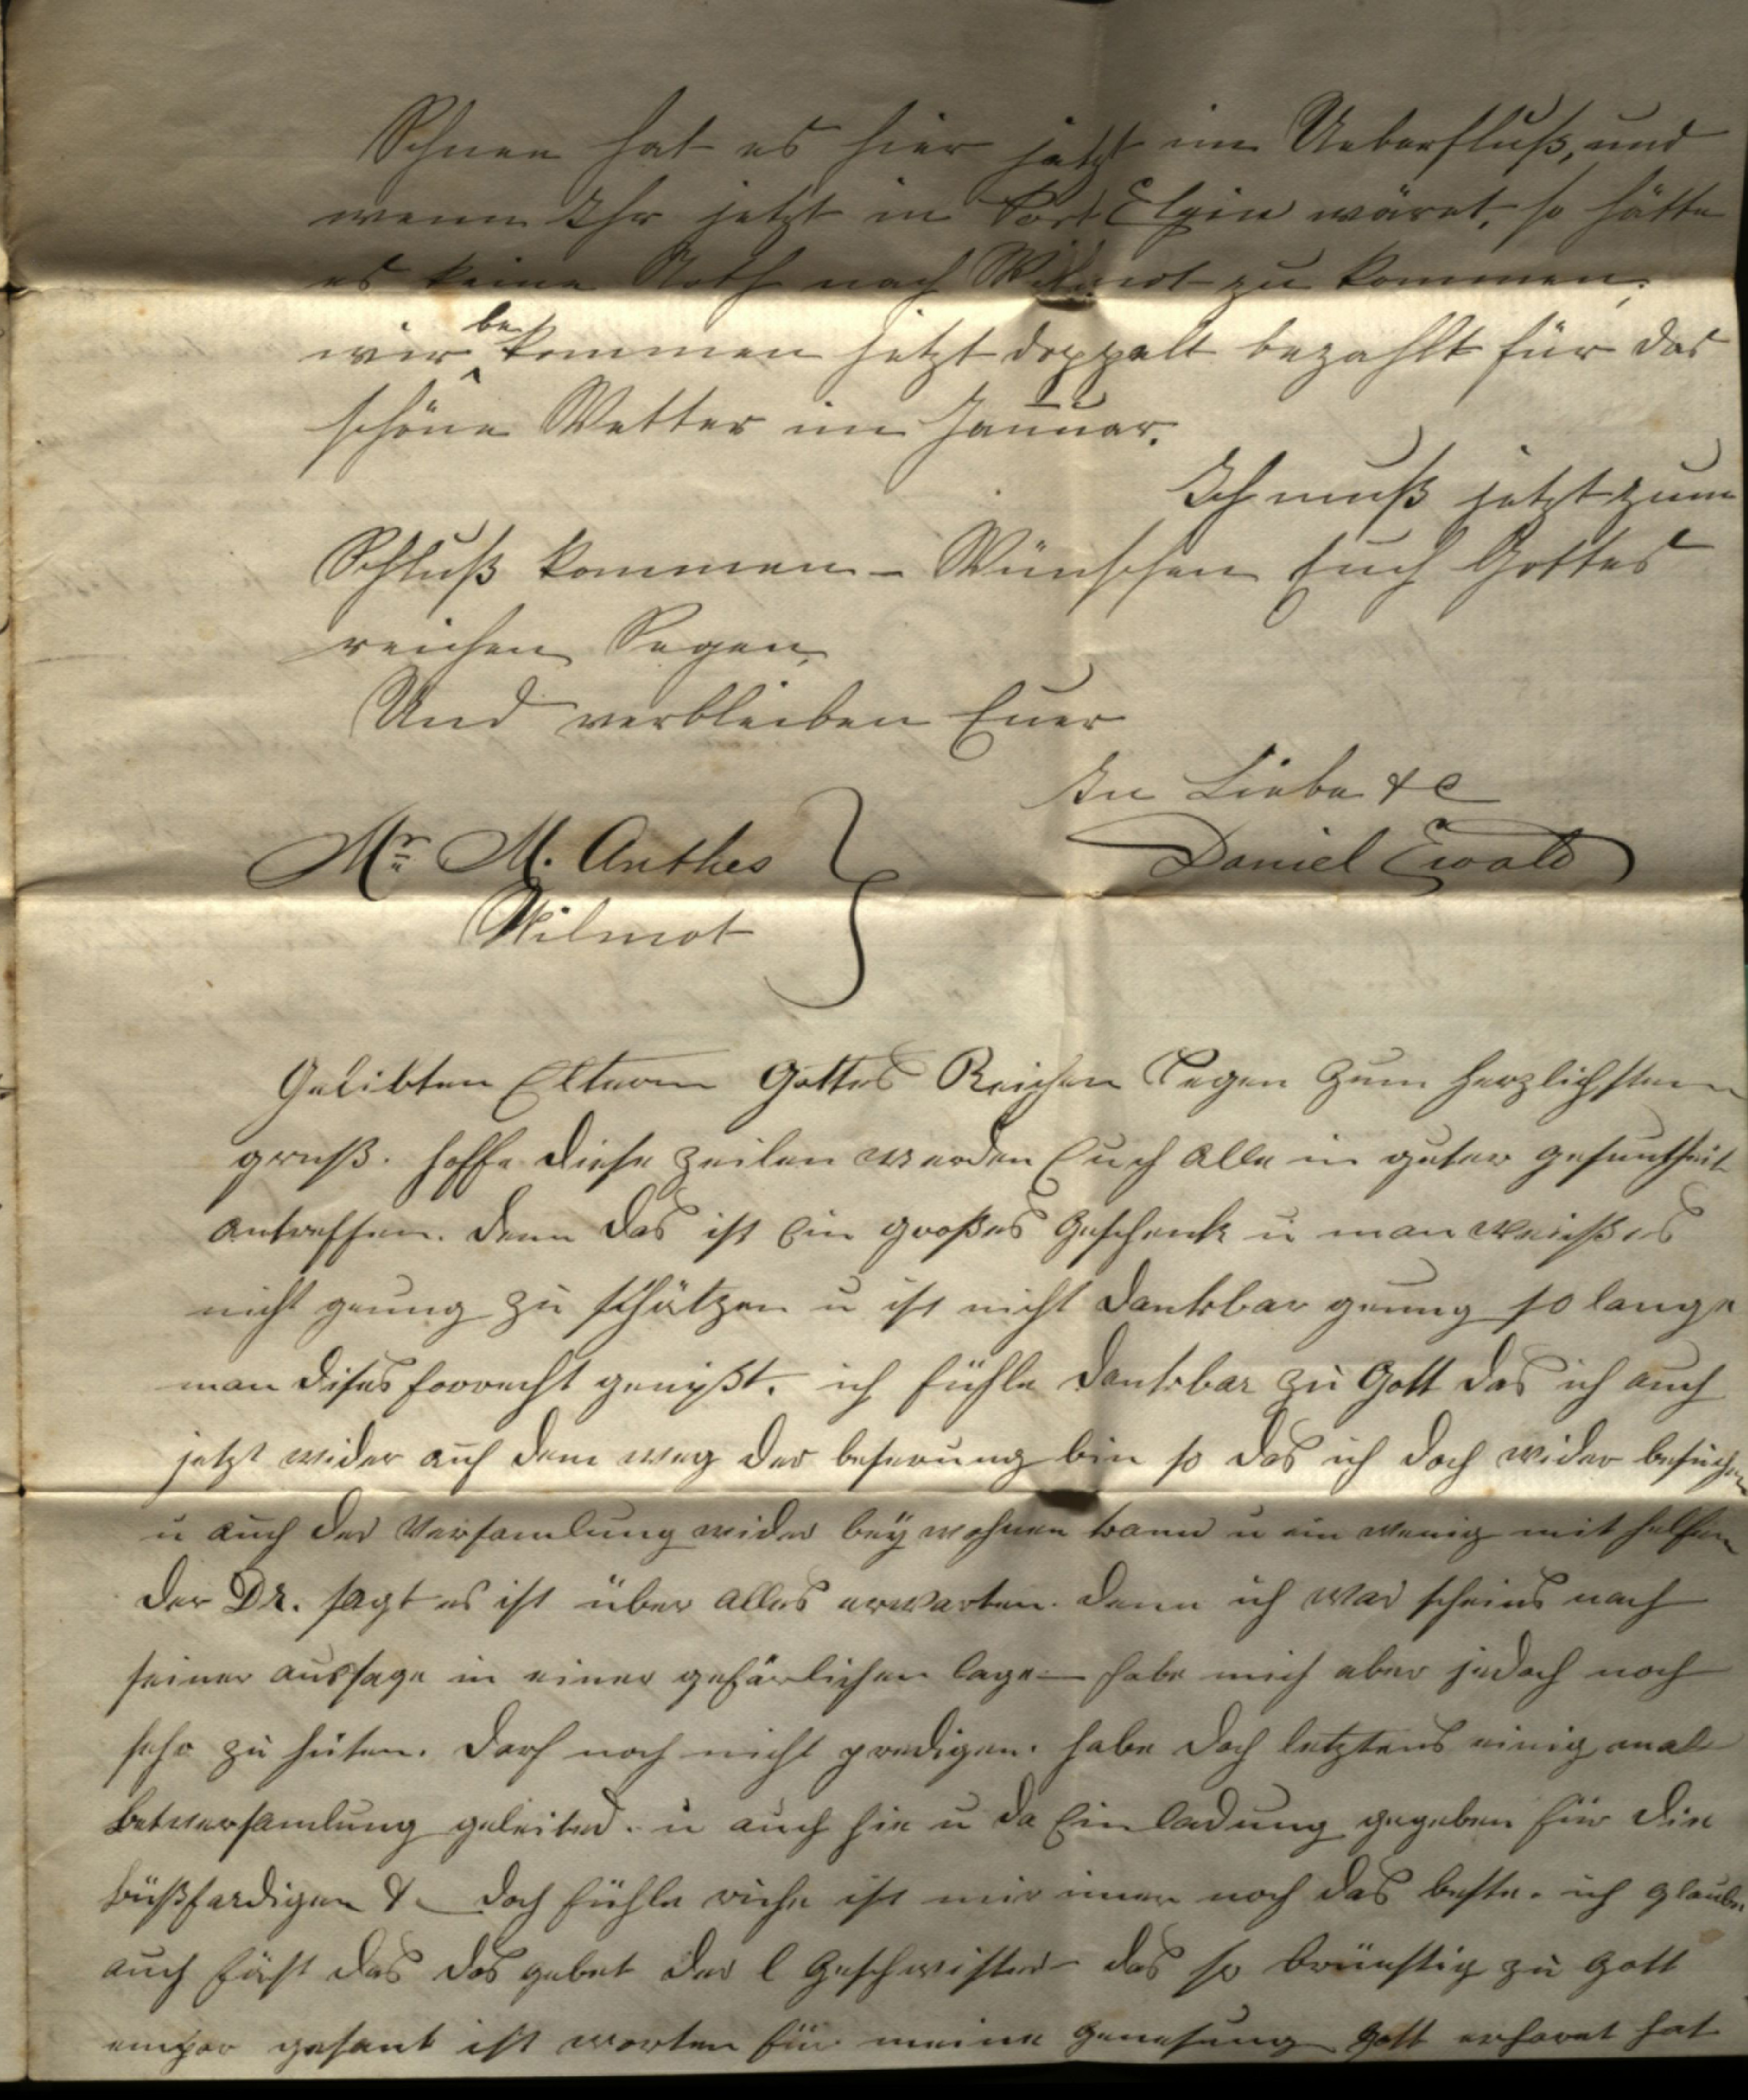 Schnee hat es hier jetzt im Ueberfluß, und
wenn Ihr jetzt in Port Elgin wäret, so hätte
es keine Noth nach Wilmot zu kommen;
wir bekommen jetzt doppelt bezahlt für das
schöne Wetter im Januar.
Ich muß jetzt zum
Schluß kommen – Wünschen Euch Gottes
reichen Segen,
Und verbleiben Euer
In Liebe &c
Daniel Ewald
Mr. M. Anthes
Wilmot
Gelibten Eltern Gottes Reichen Segen zum herzlichsten
gruß. hoffe diese zeilen werden Euch alle in guter gesuntheit
antreffen. denn das ist ein großes Geschenk u man weißes
nicht genug zu schätzen u ist nicht dankbar genug so lange
man dises forrecht genißt. ich fühle dankbar zu Gott das ich auch
jetzt wider auf dem weg der beserung bin so das ich doch wider besuchen
u auch der Versamlung wider bey wohnen kann u ein wenig mit helfen
der Dr. sagt es ist über alles erwarten. denn ich war scheins nach
seiner aussage in einer gefärlichen lage – habe mich aber jedoch noch
sehr zu hüten. darf noch nicht predigen. habe doch letztens einig mal
betversamlung geleited. u auch hie u da Einladung gegeben für die
bußferdigen & doch fühle ruhe ist mir imer noch das beste. ich glaube
auch fäst das das gebet der l Geschwister das so brünstig zu Gott
empor gesant ist worten für meine Genesung Gott erhoret hat